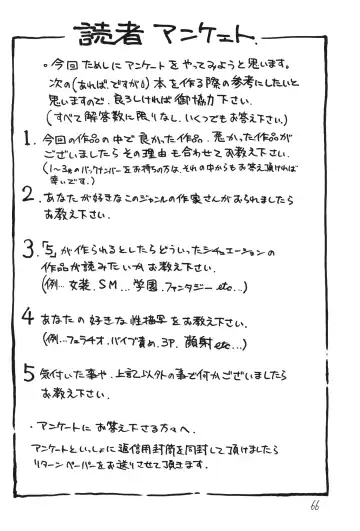 読者アンケート.
。今回ためしにアンケートをやってみようと思います。
次の(あれば、ですが)本を作る際の参考にしたいと
思いますので、良ろしければ御協力下さい。
(すべて解答数に限りなし。いくつでもお答え下さい。)
1. 今回の作品の中で良かった作品、悪かった作品が
ございましたらその理由も合わせてお教え下さい。
(1〜3のバックナンバーをお持ちの方は、それの中からもお答え頂ければ
幸いです。)
2. あなたが好きなこのジャンルの作家さんがおられましたら
お教え下さい。
3. 「5」が作られるとしたらどういったシチュエーションの
作品が読みたいかお教え下さい。
(例…女装.SM…学園.ファンタジーetc…)
4 あなたの好きな性描写をお教え下さい。
(例…フェラチオ.バイブ責め.3P.顔射etc…)
5 気付いた事や、上記以外の事で何かございましたら
お教え下さい。
・アンケートにお答え下さる方々へ.
アンケートといっしょに返信用封筒を同封して頂けましたら
リターンペーパーをお送りさせて頂きます.
66